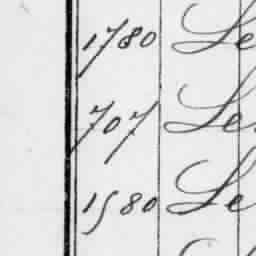 1780 Le
707 Le
1580 Le